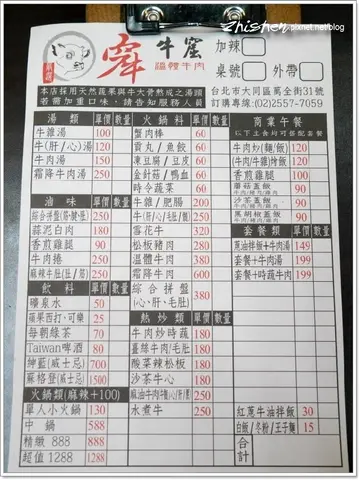 zhishen.pixnet.net/blog
霸霸
牛窟
溫體牛肉
加辣
桌號 外帶
本店採用天然蔬果與牛大骨熬成之湯頭
若需加重口味,請告知服務人員
台北市大同區萬全街31號
訂購專線:(02)2557-7059
湯類 單價 數量
牛雜湯 100
牛(肝/心)湯 120
牛肉湯 150
霜降牛肉湯 250
滷味 單價 數量
綜合拼盤(筋/腱/肚) 250
蒜泥白肉 180
香煎雞腿 100
牛肉捲 250
麻辣牛肚(肚/筋) 250
飲料 單價 數量
礦泉水 50
蘋果西打、可樂 25
每朝綠茶 70
Taiwan啤酒 80
紳藍(威士忌) 700
蘇格登(威士忌) 1500
火鍋類(麻辣+100)
單人小火鍋 130
中鍋 588
精緻 888 888
超值 1288 1288
火鍋料 單價 數量
蟹肉棒 60
貢丸/魚餃 60
凍豆腐/豆皮 60
金針菇/鴨血 60
時令蔬菜 60
牛雜/肥腸 200
牛(肝/心/毛肚) 250
雪花牛 320
松板豬肉 280
溫體牛肉 480
霜降牛肉 600
綜合拼盤
(心、肝、毛肚) 380
熱炒類 單價 數量
牛肉炒時蔬 180
薑絲牛肉/毛肚 180
酸菜辣松板 180
沙茶牛心 180
麻油牛肉(雜/心/肝/腰) 250
水煮牛 250
商業午餐
以下主食均可搭配套餐
牛肉炒(麵/飯) 120
牛肉(牛雜)燴飯 120
香煎雞腿 120
蘑菇蓋飯
牛肉/豬肉/雞肉 90
沙茶蓋飯
牛肉/豬肉/雞肉 90
黑胡椒蓋飯
牛肉/豬肉/雞肉 90
套餐類 單價 數量
蔥油拌飯+牛肉湯 149
套餐+牛肉湯 199
套餐+時蔬牛肉 199
紅蔥牛油拌飯 30
白飯/冬粉/王子麵 15
合計